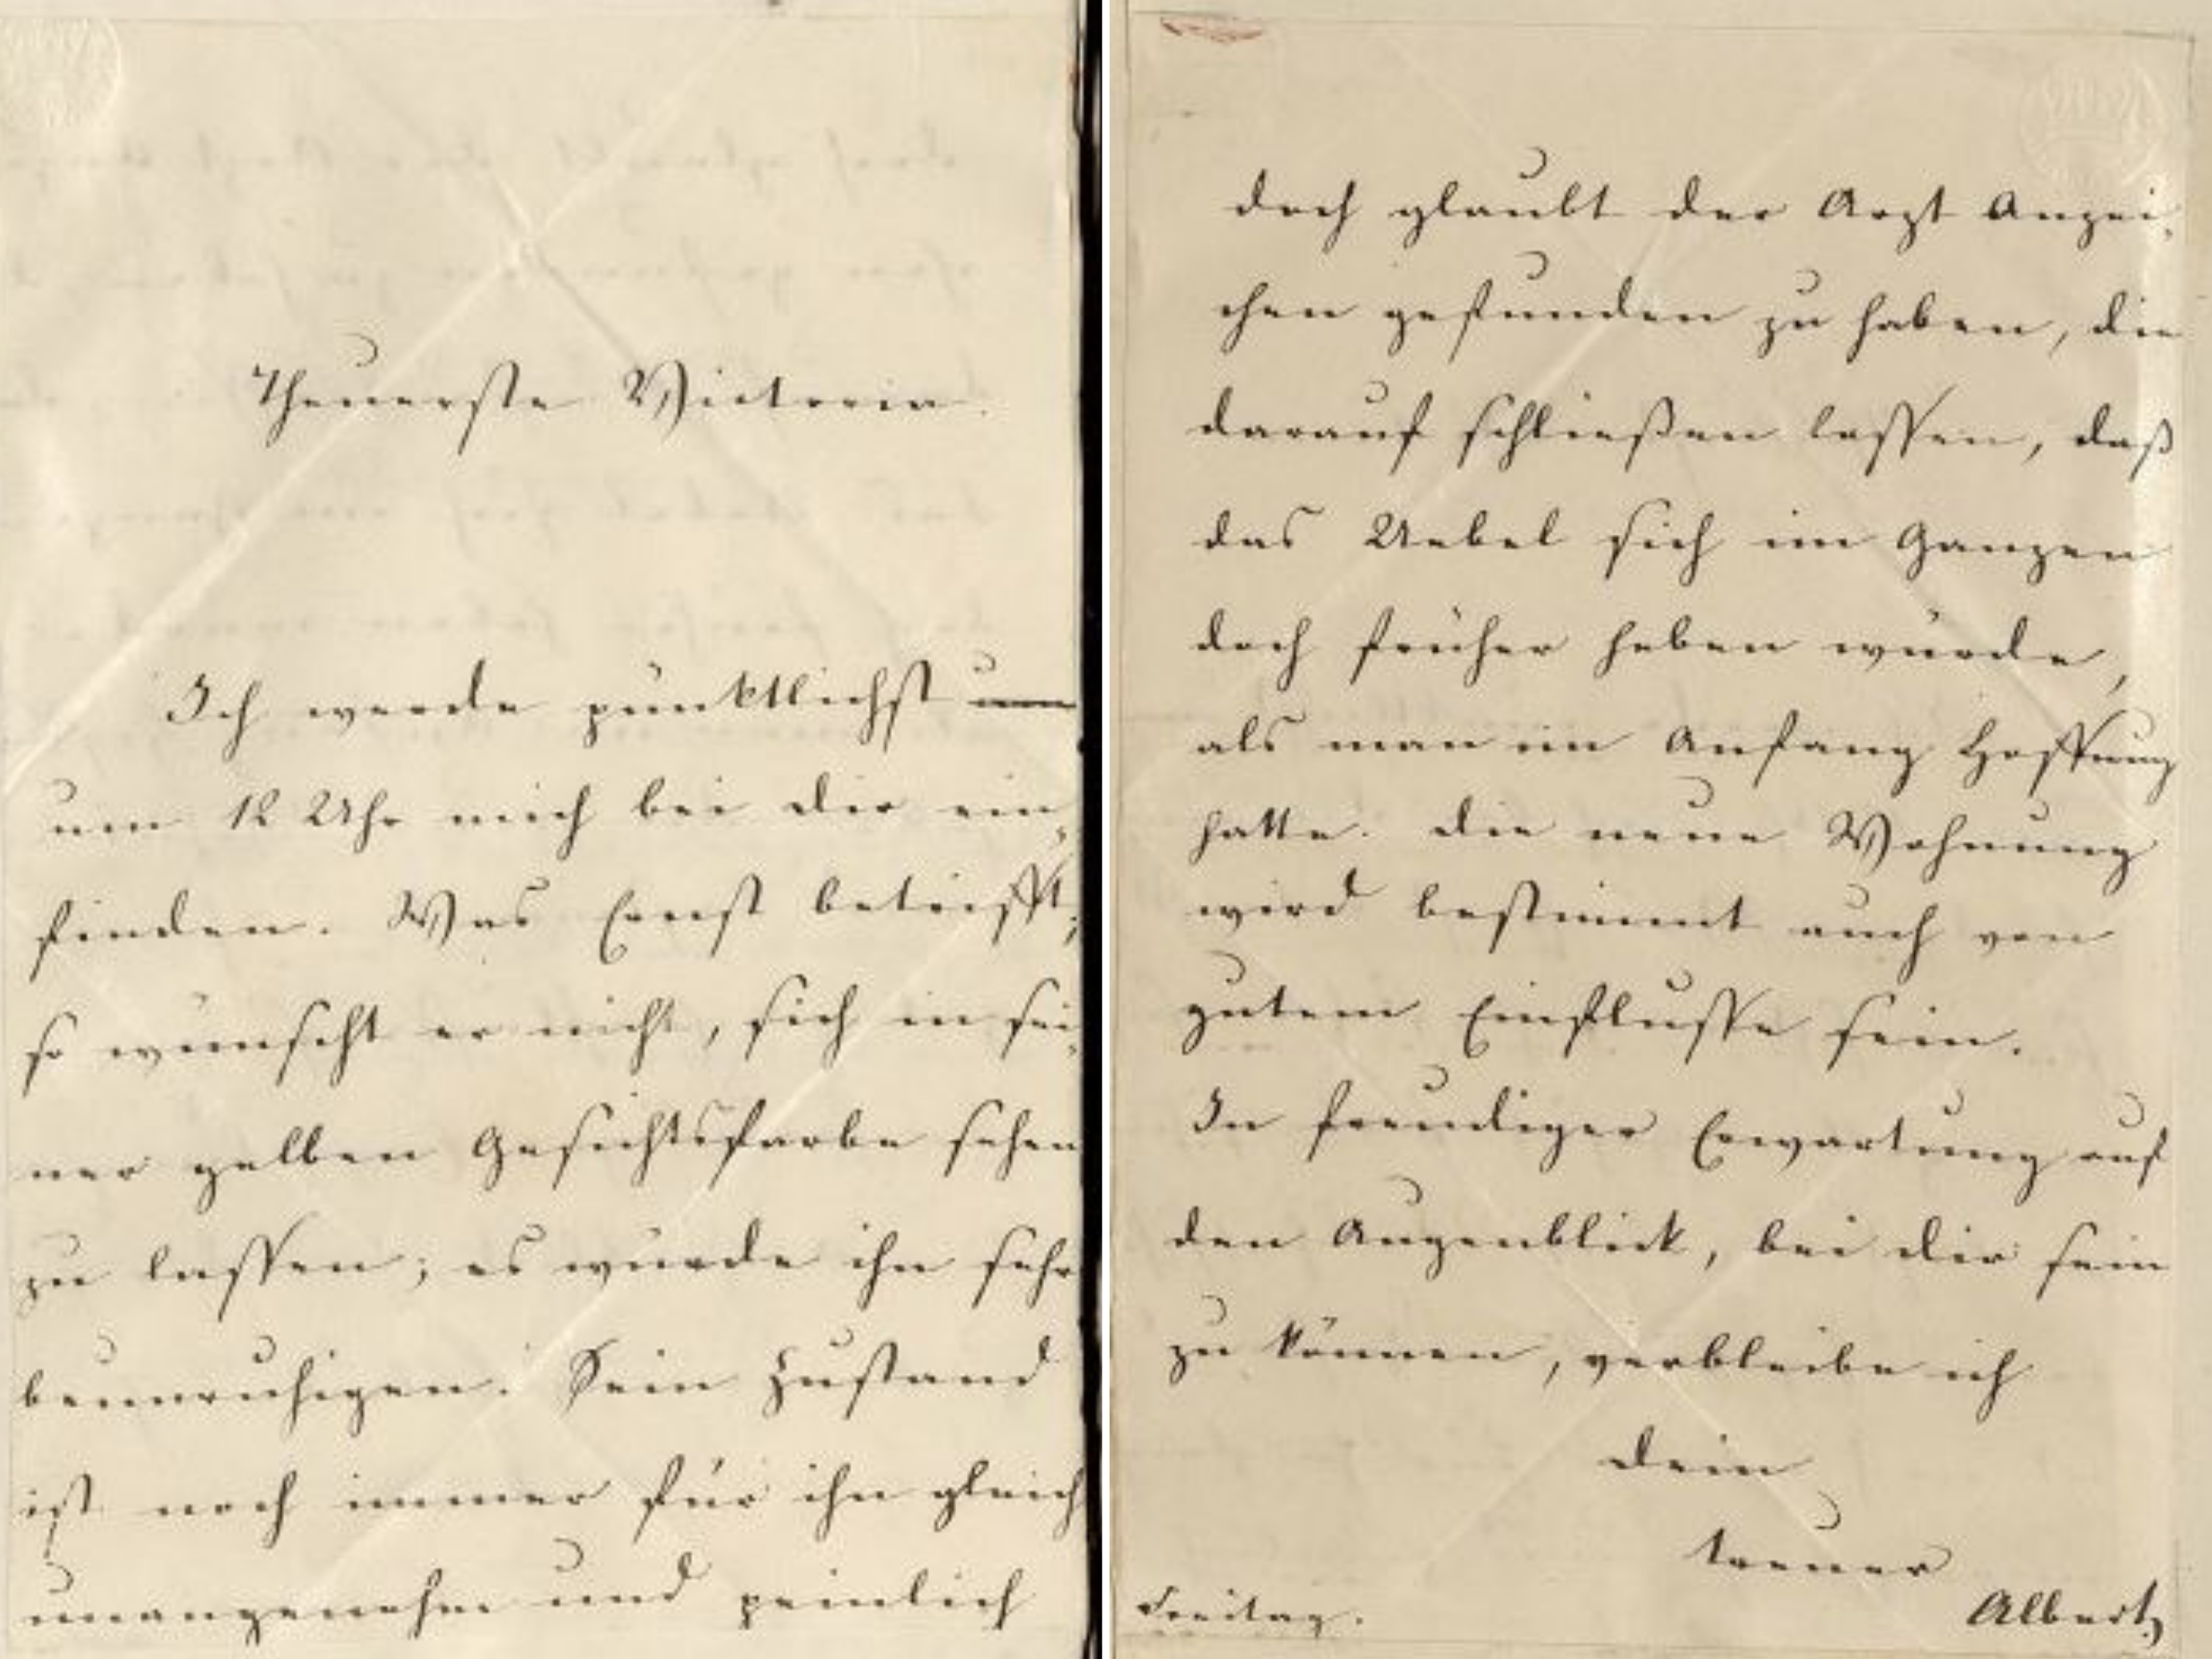 Theuerste Victoria.
Ich werde pünktlichst um
um 12 Uhr mich bei dir ein,
finden. Was Ernst betrifft,
so wünscht er nicht, sich in sei,
ner gelben Gesichtsfarbe sehen
zu lassen; es würde ihn sehr
beunruhigen. Sein Zustand
ist noch immer für ihn gleich
unangenehm und peinlich
doch glaubt der Arzt Anzei,
chen gefunden zu haben, die
darauf schließen lassen, daß
das Uebel sich im Ganzen
doch früher heben würde,
als man im Anfang Hoffnung
hatte. die neue Wohnung
wird bestimmt auch von
gutem Einflusse sein.
In freudiger Erwartung auf
den Augenblick, bei dir sein
zu können, verbleibe ich
dein
treuer
Freitag. Albert